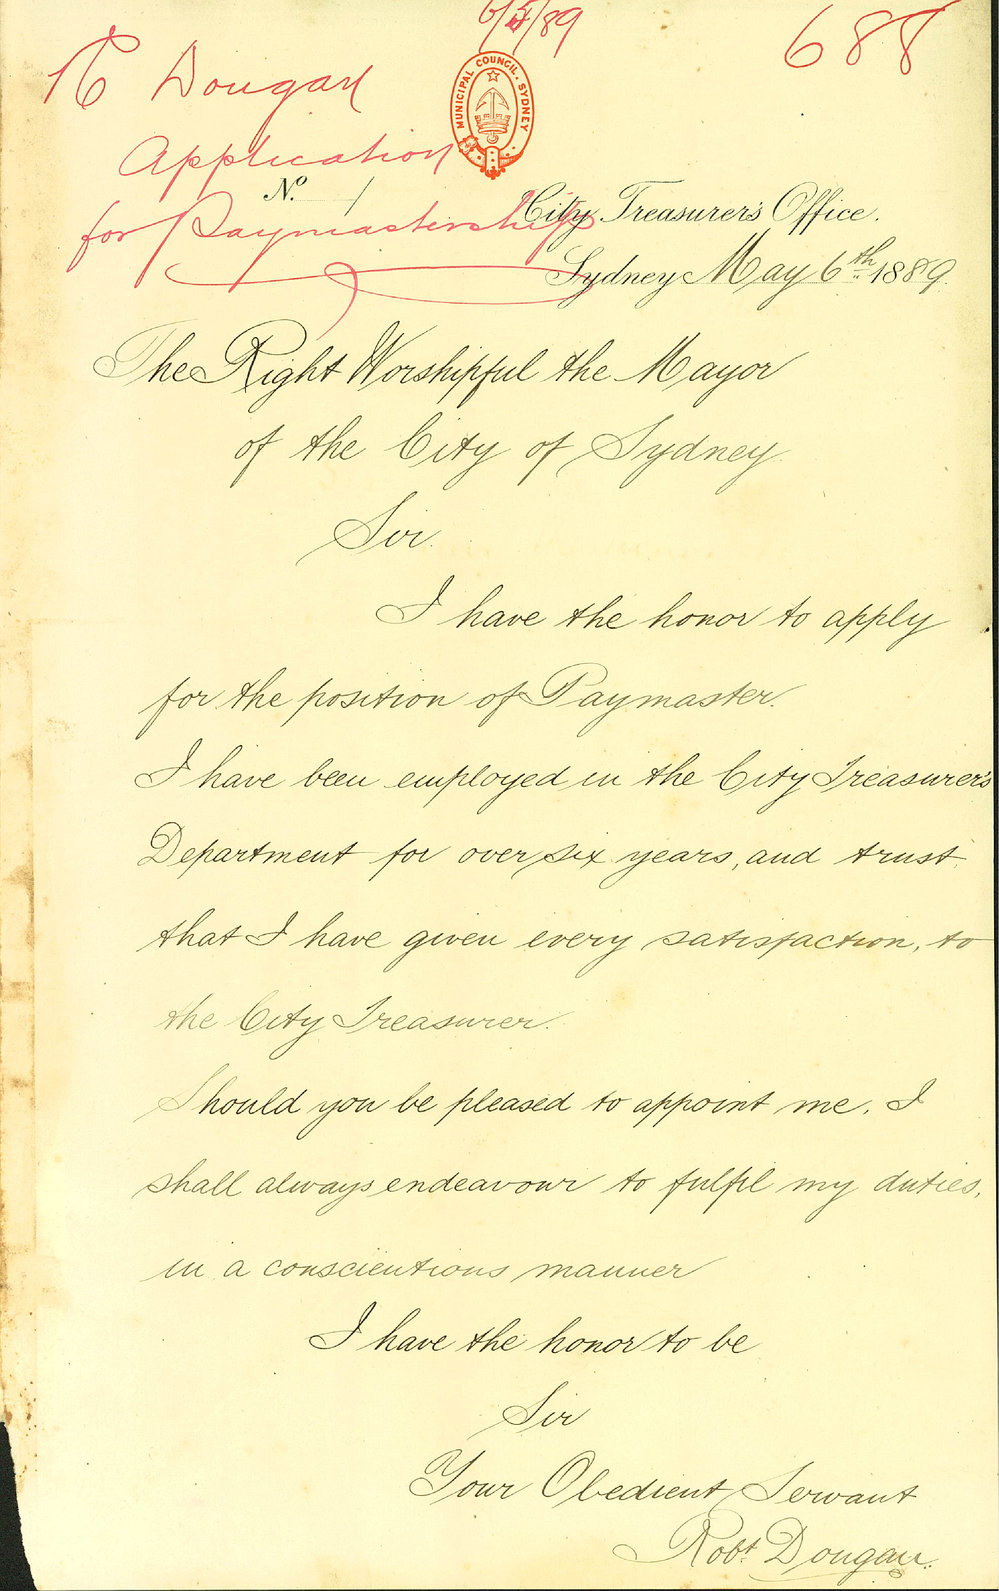 6/5/89
688
R Dougan
Application
for Paymastership
MUNICIPAL COUNCIL. SYDNEY
No. 1
City Treasurer's Office.
Sydney May 6th 1889.
The Right Worshipful the Mayor
of the City of Sydney.
Sir.
I have the honor to apply
for the position of Paymaster.
I have been employed in the City Treasurer's
Department for over six years, and trust
that I have given every satisfaction, to
the City Treasurer.
Should you be pleased to appoint me. I
shall always endeavour to fulfil my duties,
in a conscientious manner
I have the honor to be
Sir
Your Obedient Servant
Robt Dougan.